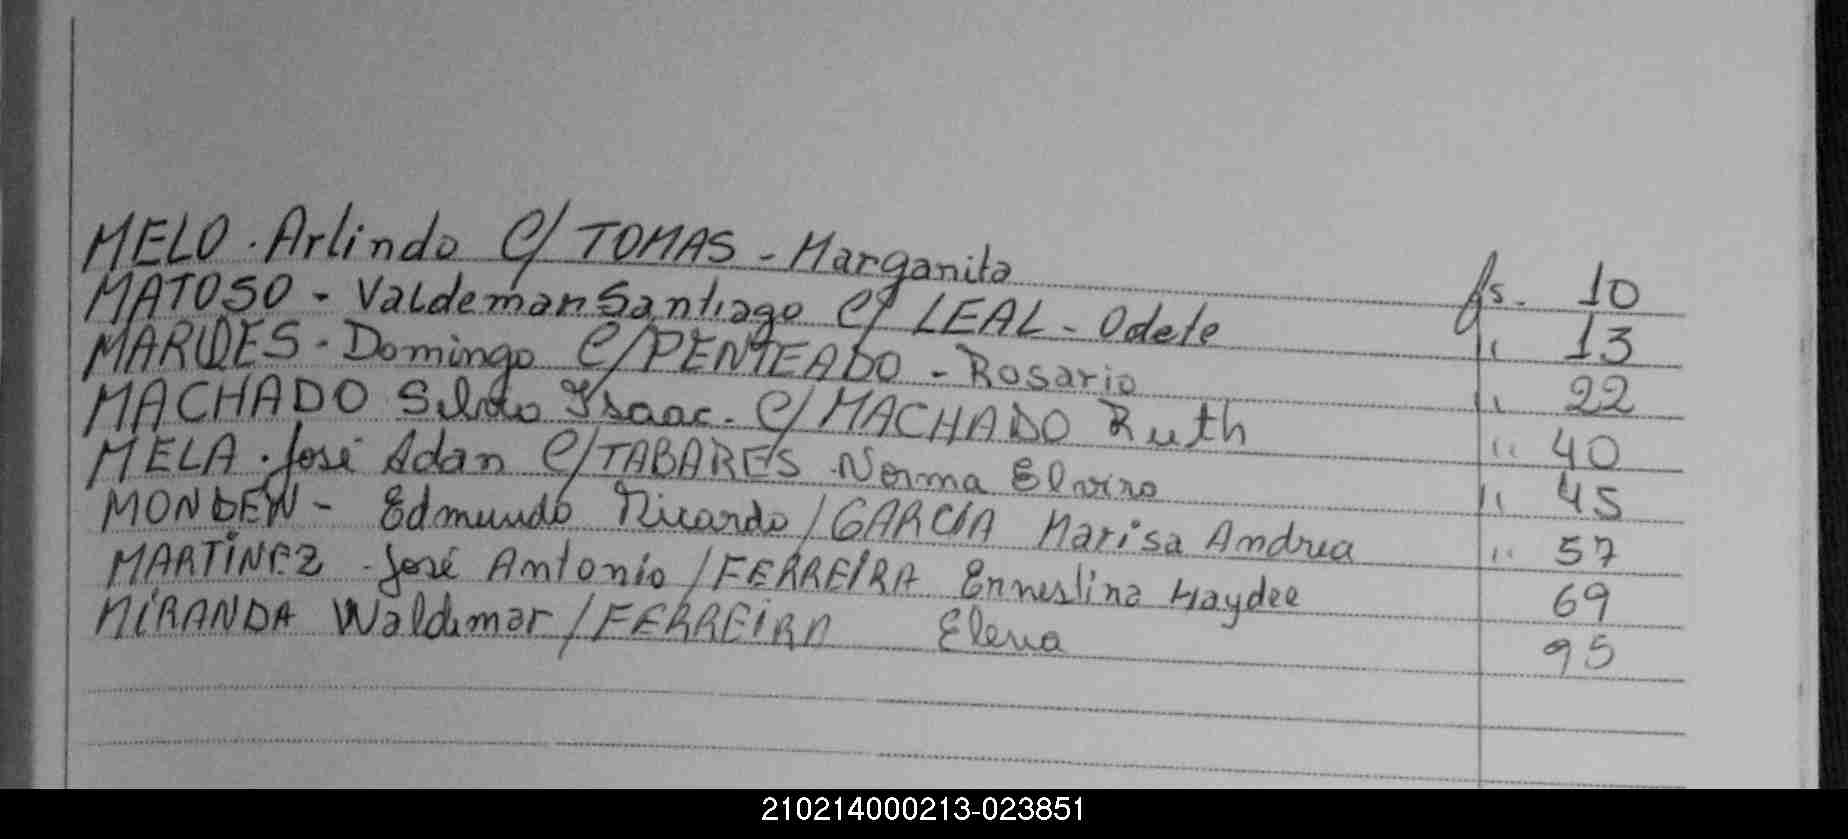 MELO. Arlindo C/ TOMAS - Margarita fs. 10
MATOSO - Valdemar Santiago C/ LEAL - Odete " 13
Domingo C/ PENTEADO - Rosario " 22
MACHADO Silvio Isaac. C/ MACHADO Ruth " 40
MELA. José Adan C/ TABARES Norma Elvira " 45
Edmundo Ricardo / GARCIA Marisa Andrea " 57
MARTÍNEZ - José Antonio / FERREIRA Ernestina Haydee 69
MIRANDA Waldemar / FERREIRA Elena 95
210214000213-023851